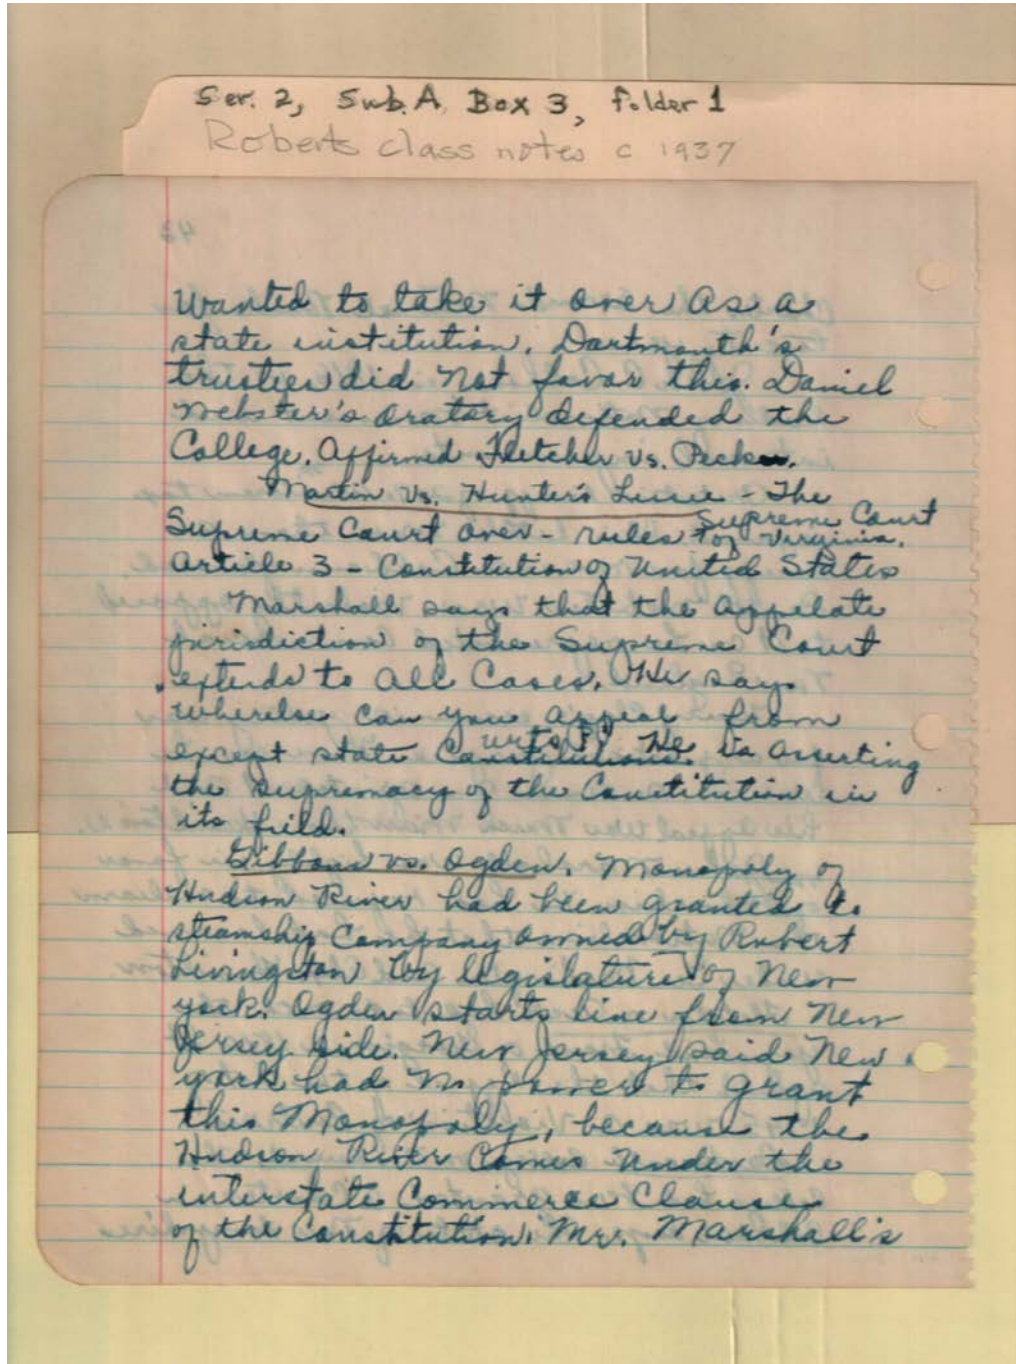 Ser. 2, Sub. A, Box 3, folder 1
Roberts class notes c 1937
Wanted to take it over as a
state institution. Dartmouth's
trustees did not favor this. Daniel
Webster's oratary defended the
College. Affirmed Fletcher vs. Peck
Martin vs. Hunter's - The
Supreme Court over-rules Supreme Court
of Virginia.
Article 3 - Constitution of United States
Marshall says that the appelate
jirisdiction of the Supreme Court
extends to all Cases. He says
wherelse can you appeal from
except state He is asserting
the supremacy of the Constitution in
its field.
Gibbons vs. Ogden. Monopoly of
Hudson River had been granted to
steamship Company owned by Robert
Livingston by legislature of New
york. Ogden starts line from New
Jersey side. New Jersey said New
york had no power to grant
this Monopoly, because the
Hudson River Comes under the
interstate Commerce Clause
of the Constitution. Mr. Marshall's